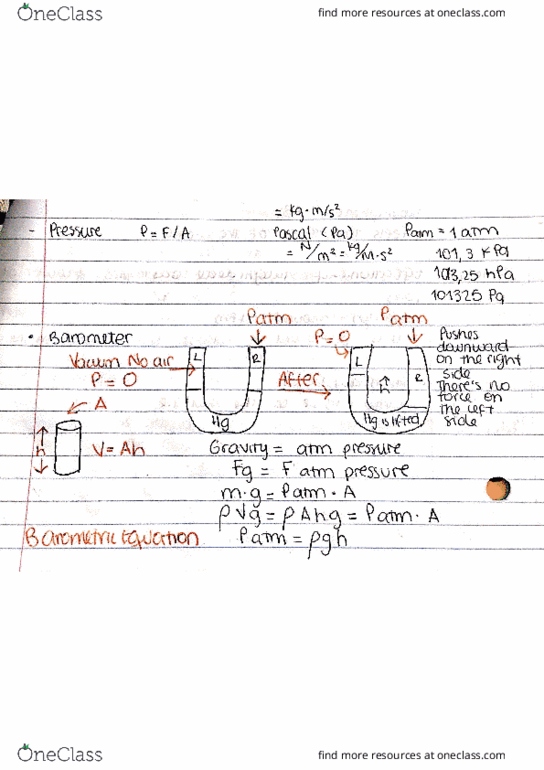 OneClass
find more resources at oneclass.com
= kg·m/s²
- Pressure P = F/A Pascal (Pa) Patm = 1 atm
= N/m² = kg/m·s² 101,3 kPa
1013,25 hPa
101325 Pa
Patm P=0 Patm
• Barometer
Vacum No air
P = 0
L R
Hg
After
L R
h
Hg is lifted
Pushes
downward
on the right
side
There's no
force on
the left
side
A
h
V = Ah
Gravity = atm pressure
Fg = F atm pressure
m·g = Patm · A
ρVg = ρAhg = Patm · A
Barometric Equation Patm = ρgh
OneClass
find more resources at oneclass.com